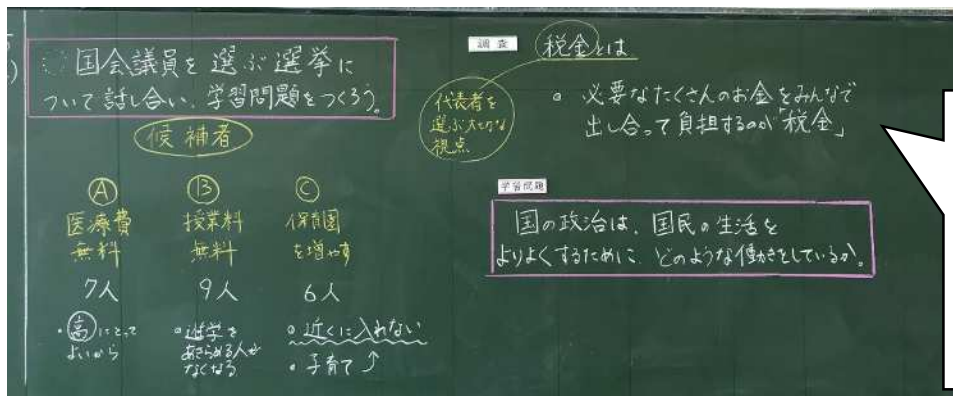 国会議員を選ぶ選挙に
ついて話し合い、学習問題をつくろう。
候補者
Ⓐ
医療費
無料
7人
・高にとって
よいから
Ⓑ
授業料
無料
9人
・進学を
あきらめる人が
なくなる
Ⓒ
保育園
を増やす
6人
・近くに入れない
・子育て↑
調査
税金とは
代表者を
選ぶ大切な
視点
・必要なたくさんのお金をみんなで
出し合って負担するのが「税金」
学習問題
国の政治は、国民の生活を
よりよくするために、どのような働きをしているか。